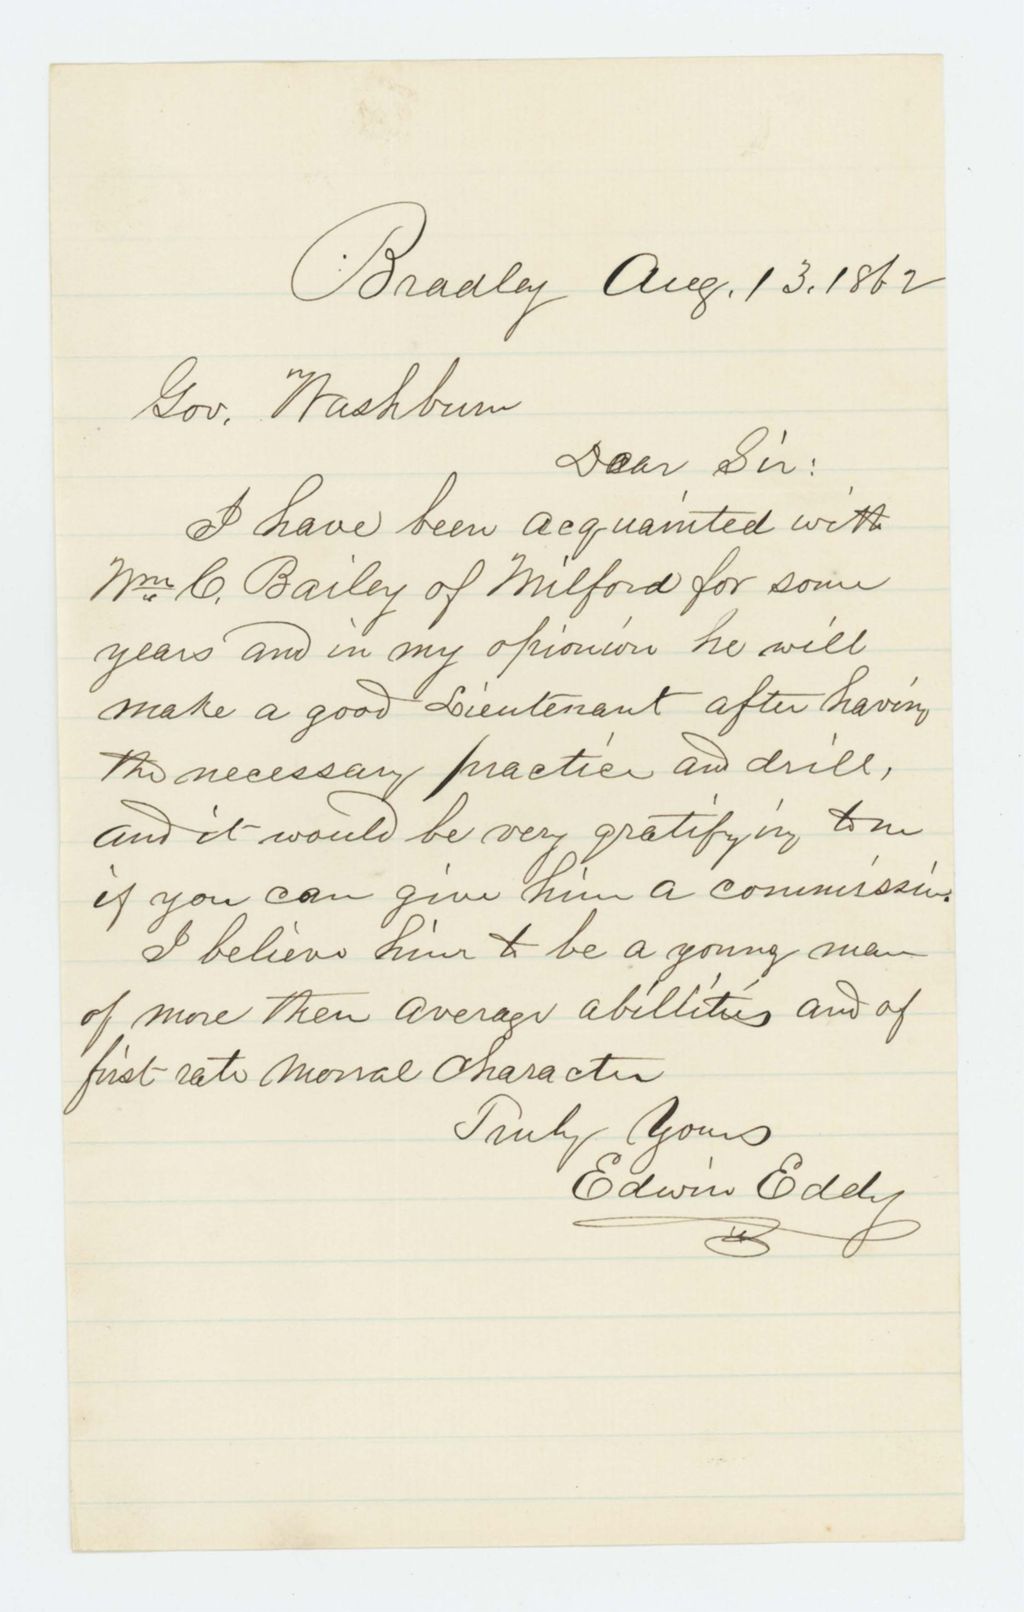 Bradley Aug. 13. 1862
Gov. Washburn
Dear Sir:
I have been acquainted with
Wm C. Bailey of Milford for some
years and in my opionion he will
make a good Lieutenant after having
the necessary practice and drill,
and it would be very gratifying to me
if you can give him a commission.
I believe him to be a young man
of more then average abillities and of
first rate morral character
Truly Yours
Edwin Eddy